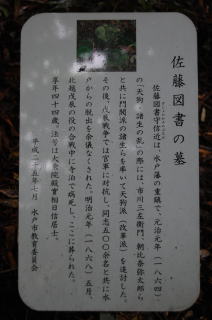 佐藤図書の墓
佐藤図書守信近は、水戸藩の重職で、元治元年(一八六四)
の「天狗・諸生の乱」の際には、市川三左衛門、朝比奈弥太郎ら
と共に門閥派の諸生らを率いて天狗派(改革派)を追討した。
その後、戊辰戦争では官軍に抗し、同志五〇〇余名と共に水
戸からの脱出を余儀なくされた。明治元年(一八六八)五月、
北越戊辰の役の合戦中に寺泊で病死し、ここに葬られた。
享年四十四歳。法号は大量院殿實相日信居士。
平成二十五年七月 水戸市教育委員会